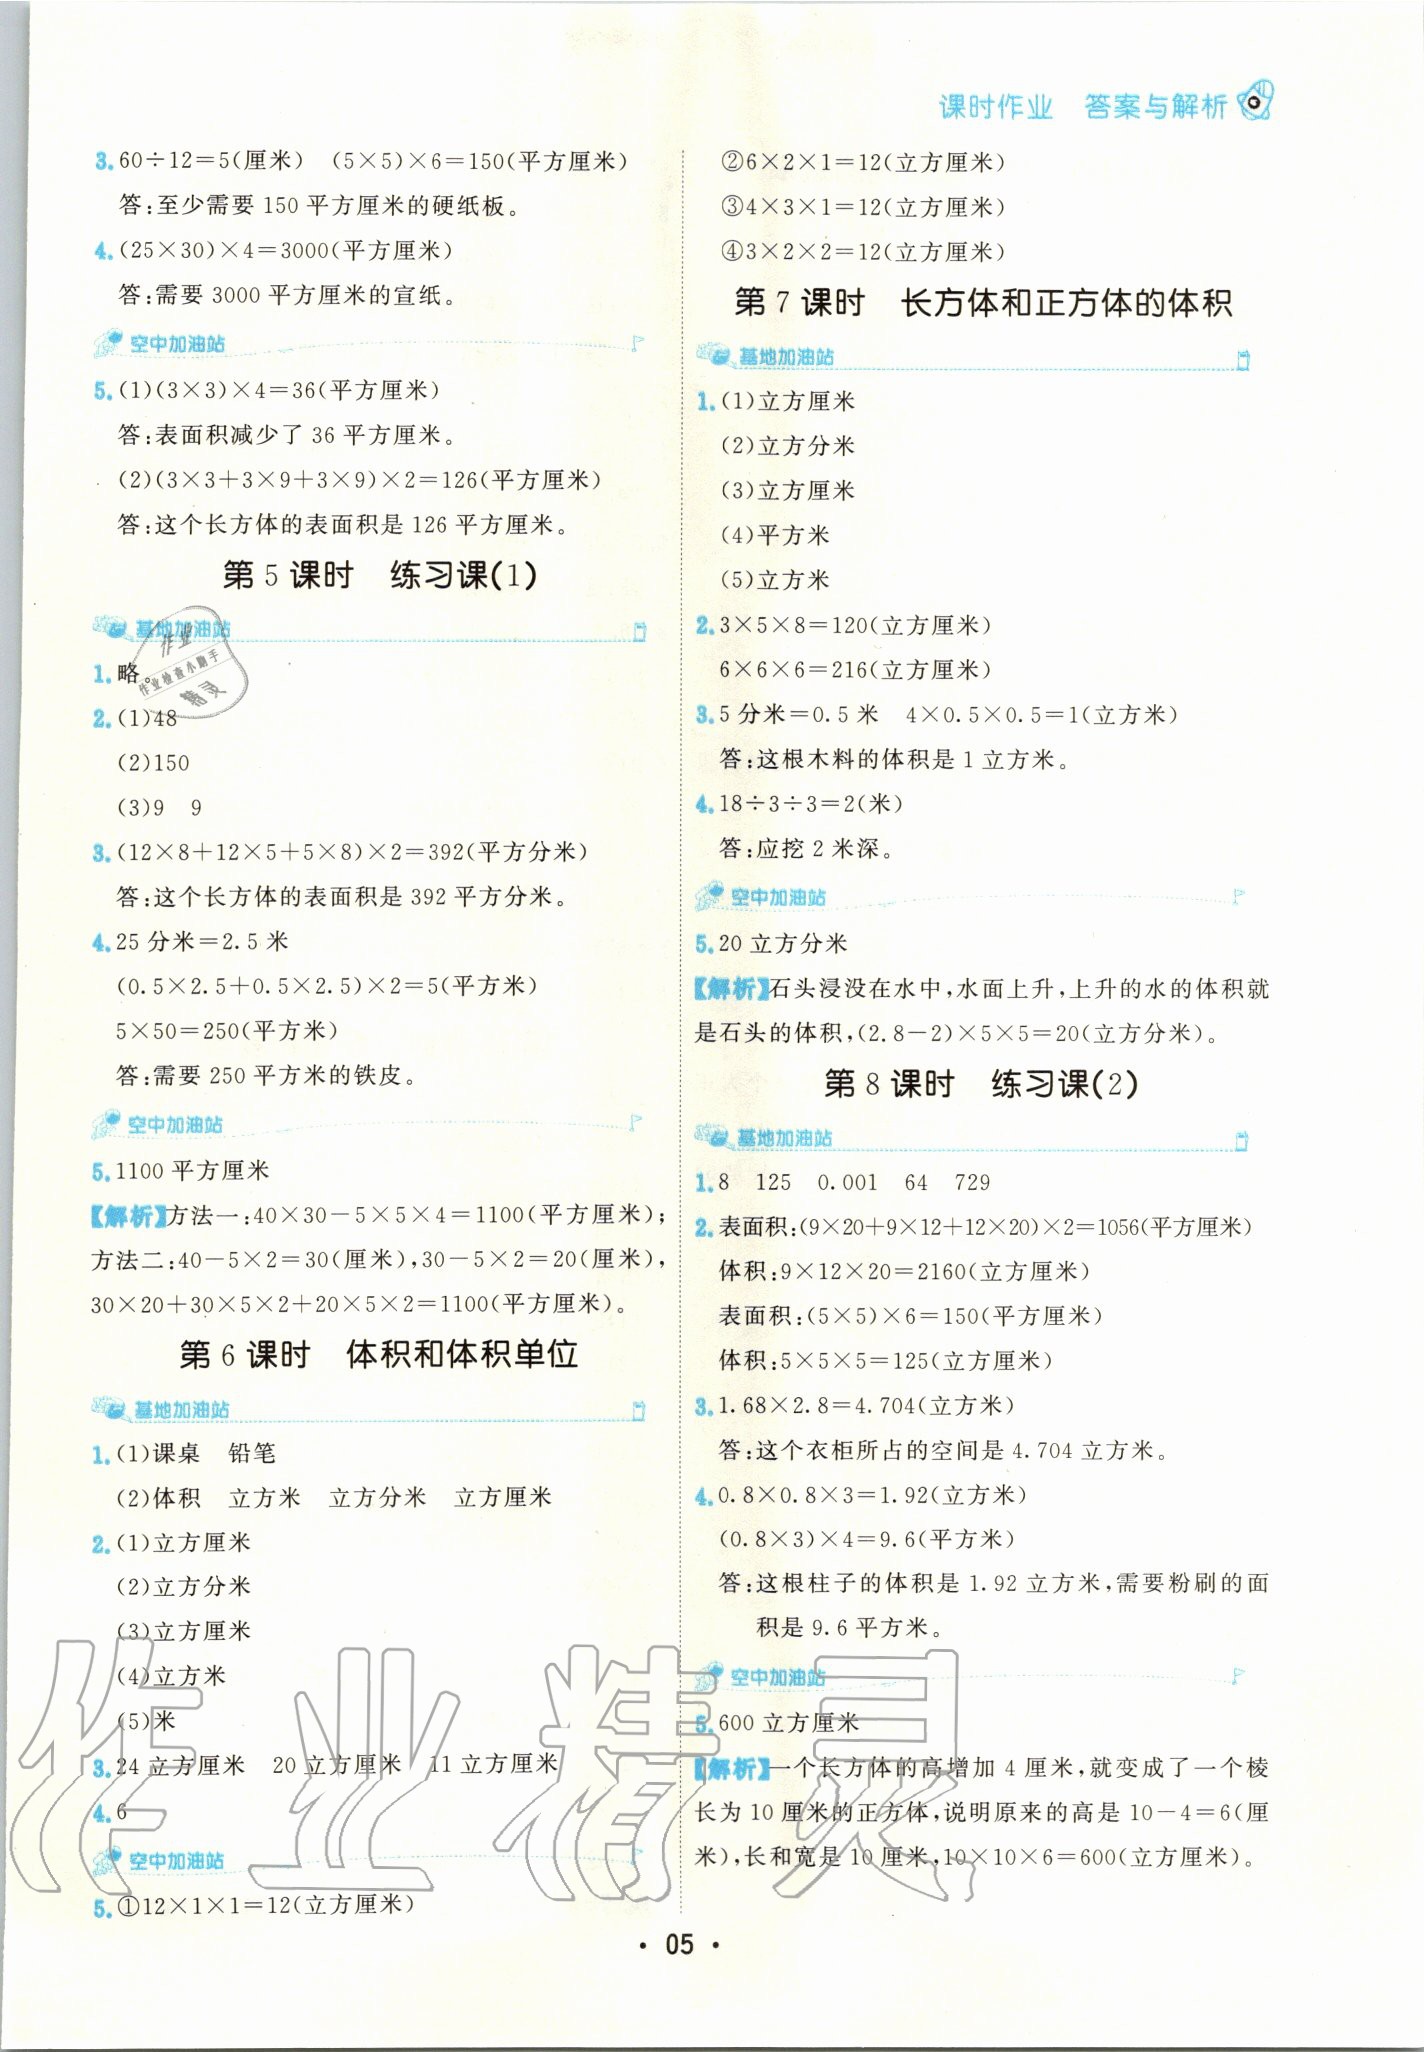 课时作业 答案与解析
3. 60÷12=5(厘米) (5×5)×6=150(平方厘米)
答:至少需要 150 平方厘米的硬纸板。
4. (25×30)×4=3000(平方厘米)
答:需要 3000 平方厘米的宣纸。
空中加油站
5. (1)(3×3)×4=36(平方厘米)
答:表面积减少了 36 平方厘米。
(2)(3×3+3×9+3×9)×2=126(平方厘米)
答:这个长方体的表面积是 126 平方厘米。
第 5 课时 练习课(1)
基地加油站
1. 略。
2. (1)48
(2)150
(3)9 9
3. (12×8+12×5+5×8)×2=392(平方分米)
答:这个长方体的表面积是 392 平方分米。
4. 25 分米=2.5 米
(0.5×2.5+0.5×2.5)×2=5(平方米)
5×50=250(平方米)
答:需要 250 平方米的铁皮。
空中加油站
5. 1100 平方厘米
【解析】方法一:40×30-5×5×4=1100(平方厘米);
方法二:40-5×2=30(厘米),30-5×2=20(厘米),
30×20+30×5×2+20×5×2=1100(平方厘米)。
第 6 课时 体积和体积单位
基地加油站
1. (1)课桌 铅笔
(2)体积 立方米 立方分米 立方厘米
2. (1)立方厘米
(2)立方分米
(3)立方厘米
(4)立方米
(5)米
3. 24 立方厘米 20 立方厘米 11 立方厘米
4. 6
空中加油站
5. ①12×1×1=12(立方厘米)
②6×2×1=12(立方厘米)
③4×3×1=12(立方厘米)
④3×2×2=12(立方厘米)
第 7 课时 长方体和正方体的体积
基地加油站
1. (1)立方厘米
(2)立方分米
(3)立方厘米
(4)平方米
(5)立方米
2. 3×5×8=120(立方厘米)
6×6×6=216(立方厘米)
3. 5 分米=0.5 米 4×0.5×0.5=1(立方米)
答:这根木料的体积是 1 立方米。
4. 18÷3÷3=2(米)
答:应挖 2 米深。
空中加油站
5. 20 立方分米
【解析】石头浸没在水中,水面上升,上升的水的体积就
是石头的体积,(2.8-2)×5×5=20(立方分米)。
第 8 课时 练习课(2)
基地加油站
1. 8 125 0.001 64 729
2. 表面积:(9×20+9×12+12×20)×2=1056(平方厘米)
体积:9×12×20=2160(立方厘米)
表面积:(5×5)×6=150(平方厘米)
体积:5×5×5=125(立方厘米)
3. 1.68×2.8=4.704(立方米)
答:这个衣柜所占的空间是 4.704 立方米。
4. 0.8×0.8×3=1.92(立方米)
(0.8×3)×4=9.6(平方米)
答:这根柱子的体积是 1.92 立方米,需要粉刷的面
积是 9.6 平方米。
空中加油站
5. 600 立方厘米
【解析】一个长方体的高增加 4 厘米,就变成了一个棱
长为 10 厘米的正方体,说明原来的高是 10-4=6(厘
米),长和宽是 10 厘米,10×10×6=600(立方厘米)。
· 05 ·
作业
作业检查小助手
精灵
作业精灵